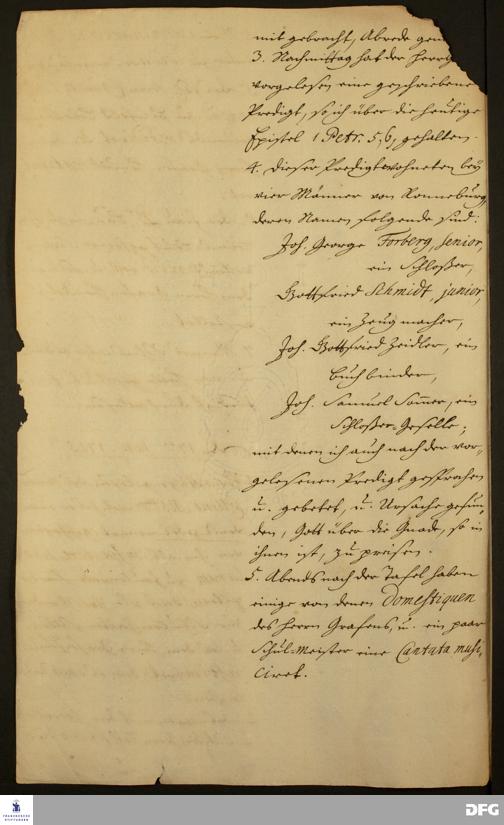 mit gebracht, Abrede
3. Nachmittag hat der Herr
vorgelesen eine geschriebene
Predigt, so ich über die heutige
Epistel 1 Petr. 5, 6, gehalten.
4. dieser Predigt wohneten bey
vier Männer von Ronneburg,
deren Namen folgende sind:
Joh. George Forberg, senior,
ein Schloßer,
Gottfried Schmidt, junior,
ein Zeugmacher,
Joh. Gottfried Zeidler, ein
Buchbinder,
Joh. Samuel Sommer, ein
Schloßer-Geselle;
mit denen ich auch nach der vor-
gelesenen Predigt gesprochen
u. gebetet, u. Ursache gefun-
den, Gott über die Gnade, so in
ihnen ist, zu preisen.
5. Abends nach der Tafel haben
einige von denen Domestiquen
des Herrn Grafens, u. ein paar
Schul-Meister eine Cantata musi-
ciret.
FRANCKESCHE
STIFTUNGEN
DFG